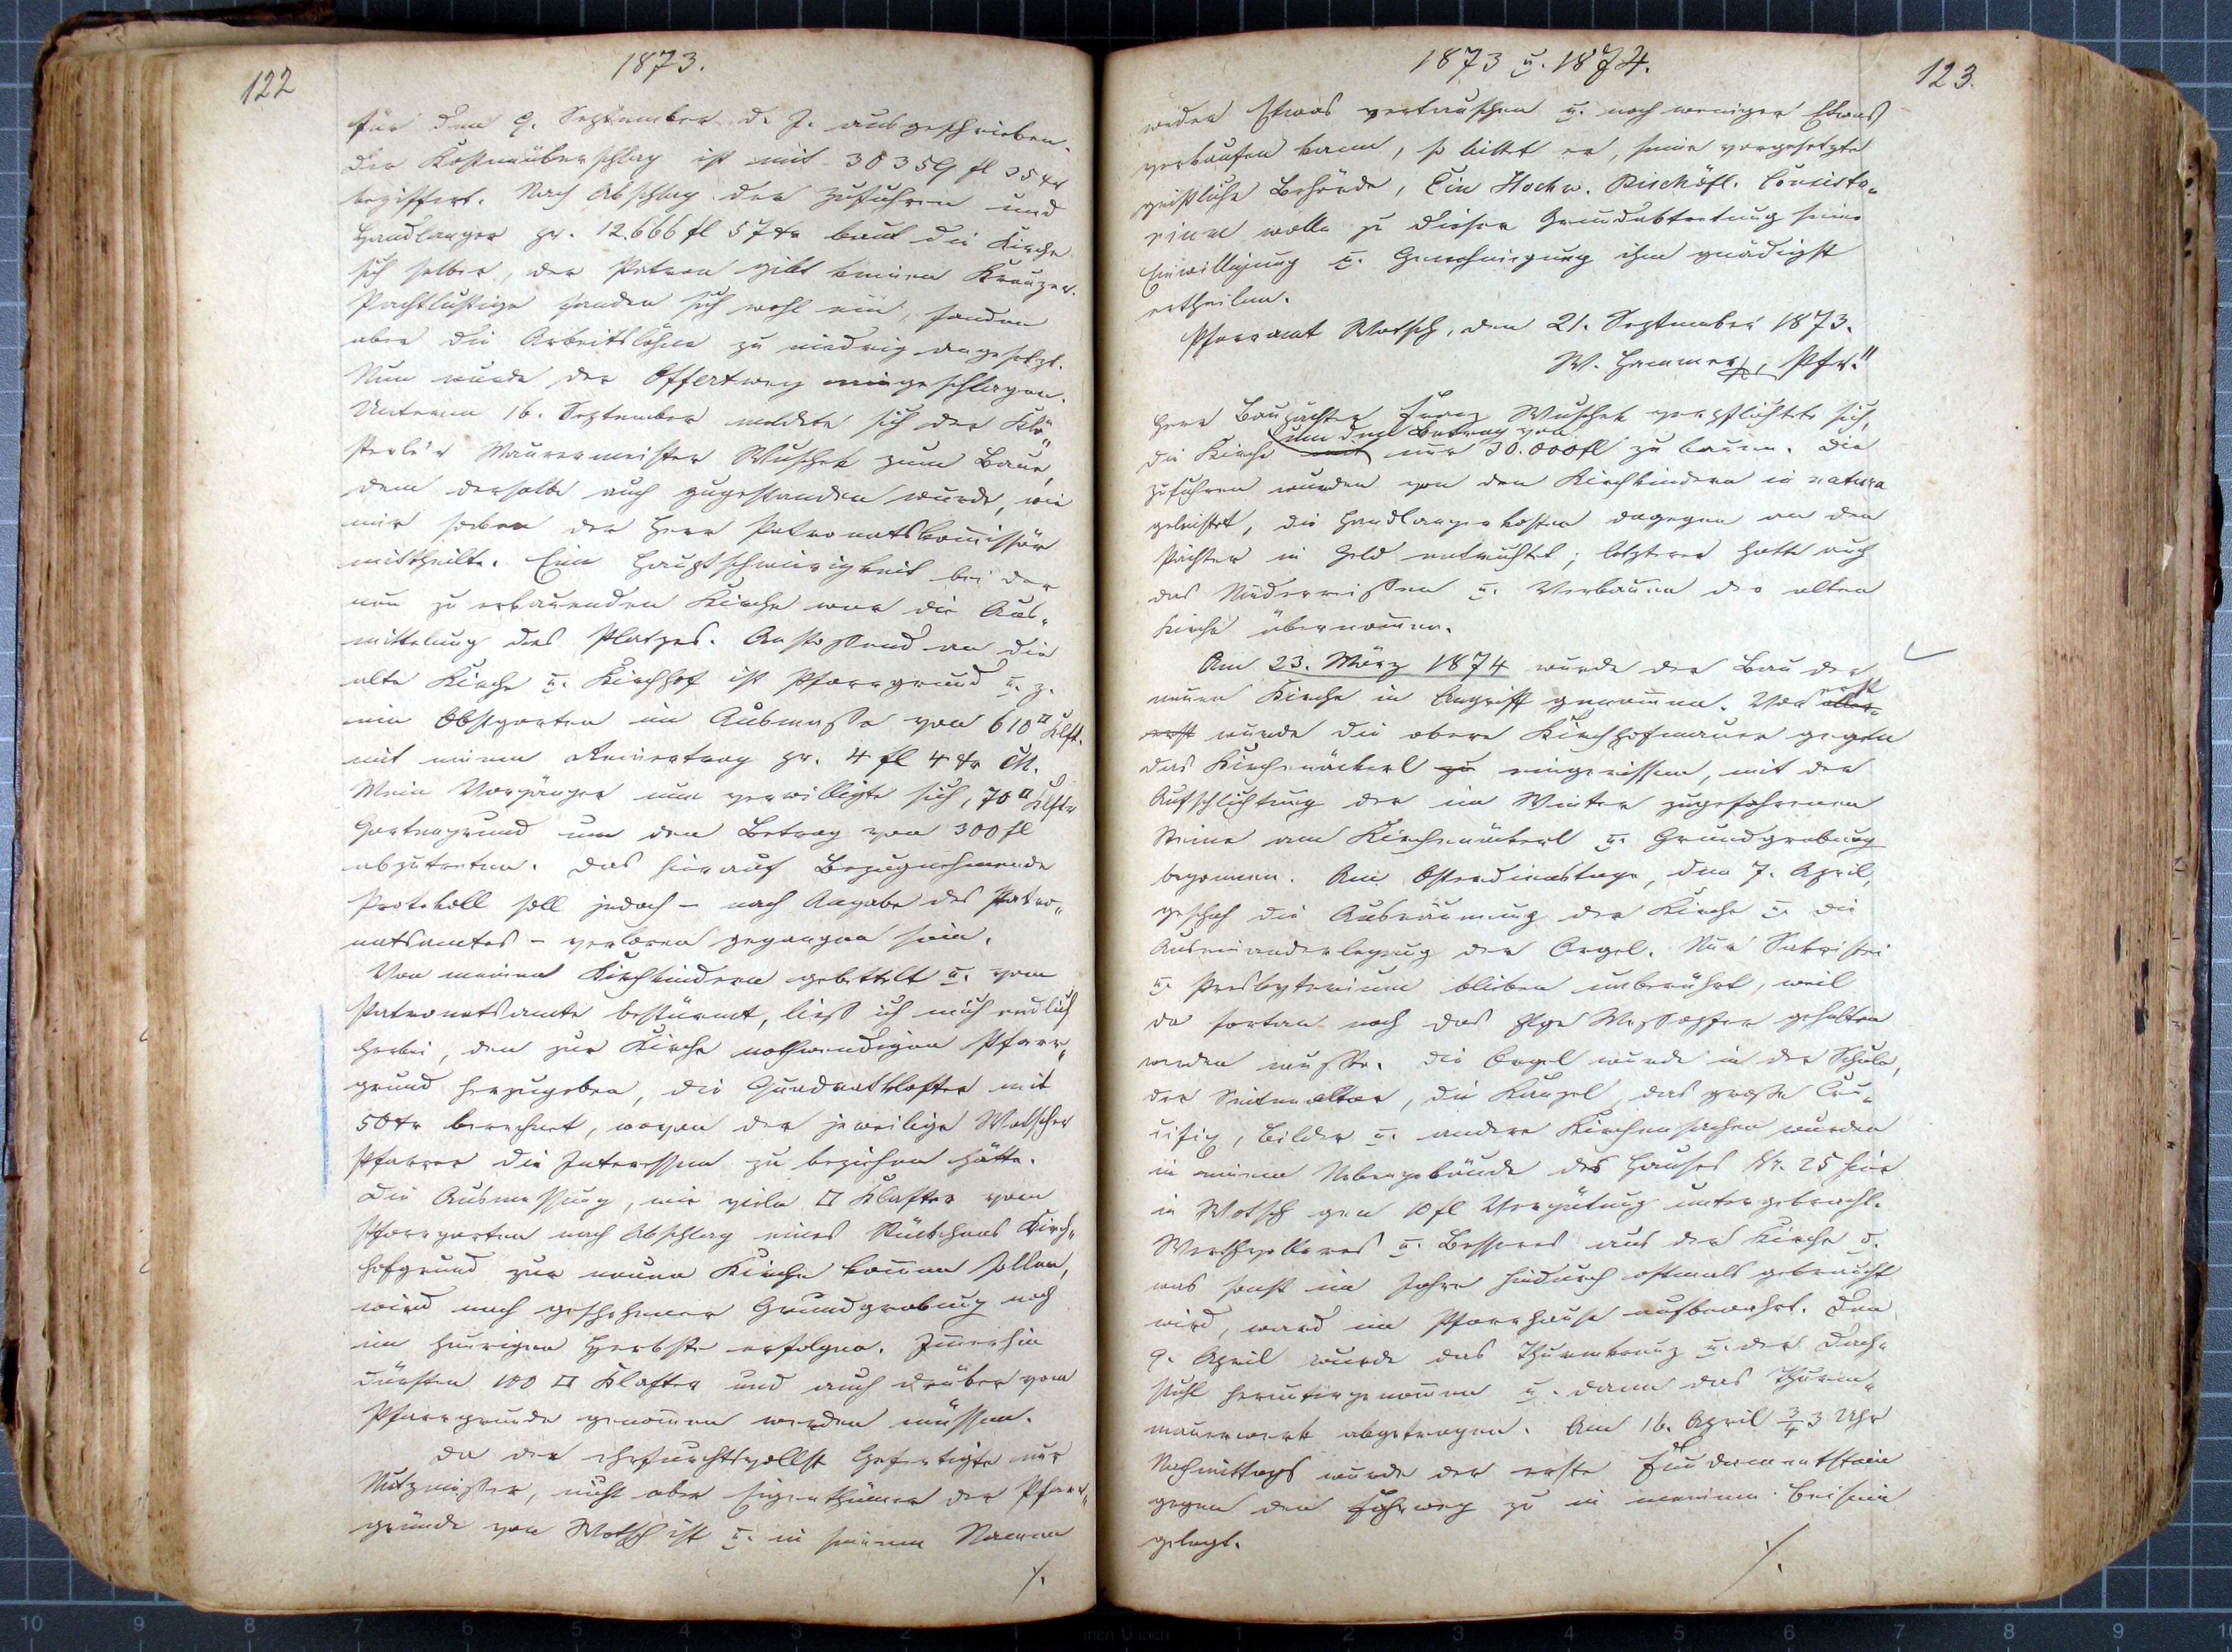 122
1873.
für den 9. September d. J. ausgeschrieben.
Der Kostenüberschlag ist mit 30359 fl 35 xr
beziffert. Nach Abschlag der Zufuhren und
Handlanger pr. 12.666 fl 57 xr baut die Kirche
sich selber, der Patron gibt keinen Kreuzer.
Pachtlustige fanden sich wohl ein, fanden
aber die Arbeitslöhne zu niedrig angesetzt.
Nun wurde der Offertweg eingeschlagen.
Unterm 16. September meldete sich der Klö„
sterle'r Maurermeister Wuschek zum Baue,
dem derselbe auch zugestanden wurde, wie
mir soeben der Herr Patronatskomissär
mittheilte. Eine Hauptschwierigkeit bei der
neu zu erbauenden Kirche war die Aus„
mittelung des Platzes. Anstoßend an die
alte Kirche u. Kirchhof ist Pfarrgrund u. z.
ein Obstgarten im Ausmaße von 610 □ Klft.
mit einem Reinertrag pr. 4 fl 4 xr CM.
Mein Vorgänger nun verwilligte sich, 70 □ Klftr
Gartengrund um den Betrag von 300 fl
abzutreten. Das hierauf Bezugnehmende
Protokoll soll jedoch – nach Angabe des Patro„
natsamtes – verloren gegangen sein.
Von meinen Kirchkindern gebettelt u. vom
Patronatsamte bestürmt, ließ ich mich endlich
herbei, den zur Kirche nothwendigen Pfarr„
grund herzugeben, die Quadratklafter mit
50 xr berechnet, wovon der jeweilige Wotscher
Pfarrer die Interessen zu beziehen hätte.
Die Ausmessung, wie viele □ Klafter vom
Pfarrgarten nach Abschlag eines Stückchens Kirch„
hofgrund zur neuen Kirche komen sollen,
wird nach geschehener Grundgrabung noch
im heurigen Herbste erfolgen. Imerhin
dürften 100 □ Klafter und auch drüber vom
Pfarrgrunde genomen werden müssen.
Da der ehrfurchtsvollst Gefertigte nur
Nutznießer, nicht aber Eigenthümer der Pfarr„
gründe von Wotsch ist u. in seinem Namen
./.
1873 u. 1874.
123.
weder Etwas vertauschen u. noch weniger Etwas
verkaufen kann, so bittet er, seine vorgesetzte
geistliche Behörde, Ein Hochw. Bischöfl. Consisto„
rium wolle zu dieser Grundabtretung seine
Einwilligung u. Genehmigung ihm gnädigst
ertheilen.
Pfarramt Wotsch, den 21. September 1873.
W. Hammer, Pfr."
Herr Baupächter Franz Wuschek verpflichtete sich,
um den Betrag von
die Kirche mit nur 30.000 fl zu bauen. Die
Zufuhren wurden von den Kirchkindern in natura
geleistet, die Handlangerkosten dagegen an den
Pächter in Geld entrichtet; letzterer hatte auch
das Niederreißen u. Verbauen der alten
Kirche übernomen.
Am 23. März 1874 wurde der Bau der
neuen Kirche in Angriff genomen. Vor aller„ erst
erst wurde die obere Kirchhofmauer gegen
das Kirchenäckerl zu eingerissen, mit der
Aufschlichtung der im Winter zugefahrenen
Steine am Kirchenäckerl u. Grundgrabung
begonnen. Am Osterdienstage, den 7. April,
geschah die Ausräumung der Kirche u. die
Auseinanderlegung der Orgel. Nur Sakristei
u. Presbyterium blieben unberührt, weil
da fortan noch das hlge Messopfer gehalten
werden mußte. Die Orgel wurde in der Schule,
der Seitenaltar, die Kanzel, das große Cru„
cifix, Bilder u. andere Kirchensachen wurden
in einem Nebengebäude des Hauses Nr. 25 hier
in Wotsch gegen 10 fl Vergütung untergebracht.
Werthvolleres u. Besseres aus der Kirche u.
was sonst im Jahre hindurch oftmals gebraucht
wird, ward im Pfarrhause aufbewahrt. Den
9. April wurde das Thurmkreuz u. der Dach„
stuhl heruntergenomen u. dann das Thurm„
mauerwerk abgetragen. Am 16. April ¾3 Uhr
Nachmittags wurde der erste Fundamentstein
gegen den Fahrweg zu in meinem Beisein
gelegt.
./.